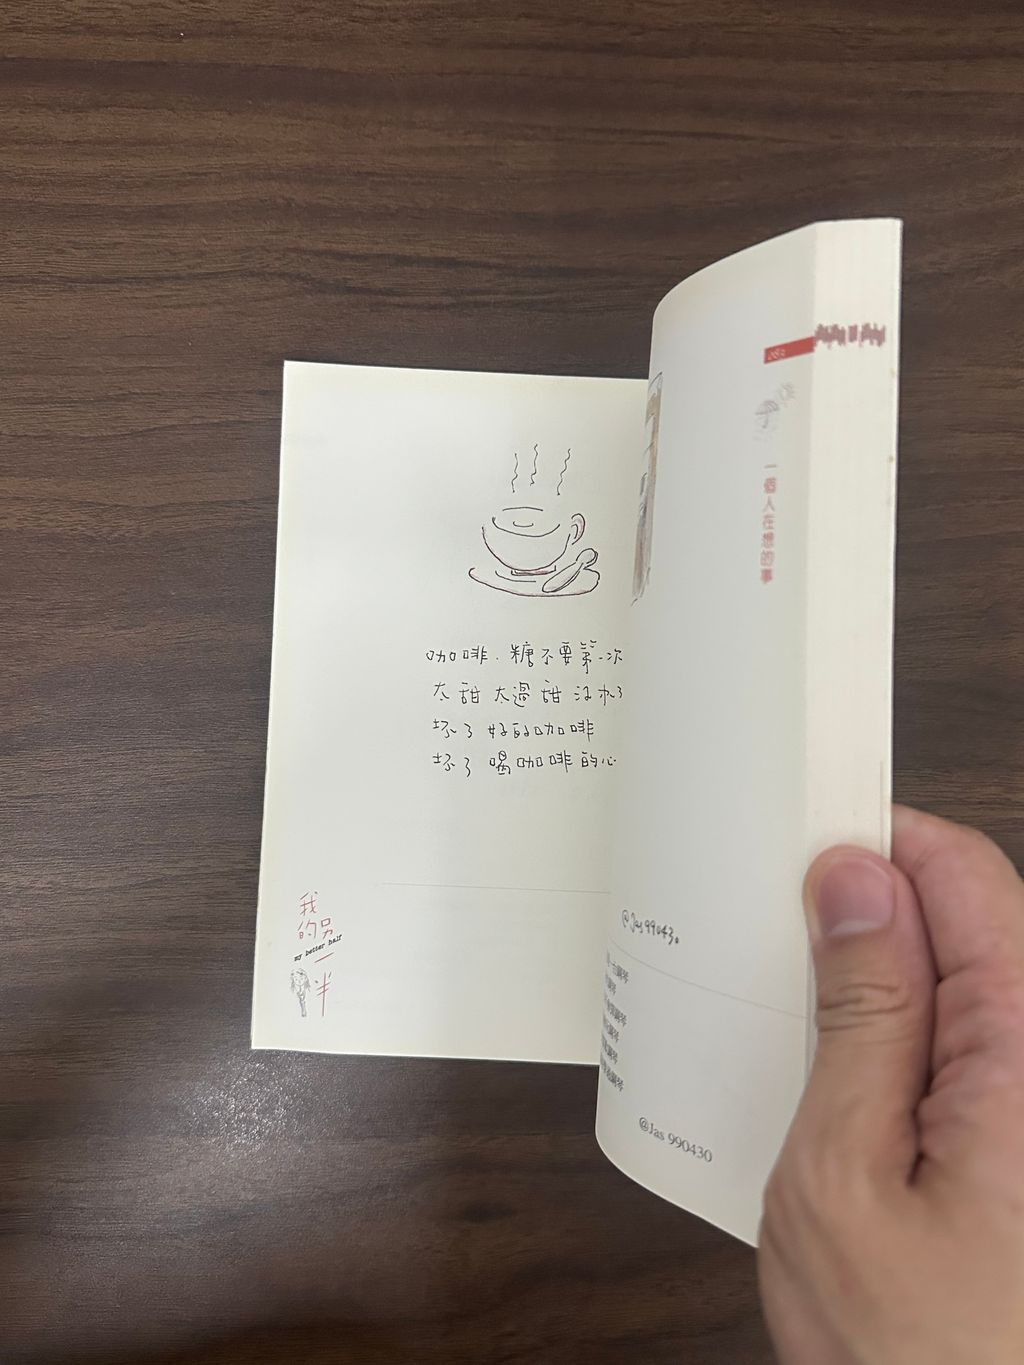 咖啡.糖不要第一次
太甜 太過甜 沒救了
坏了 好的咖啡
坏了 喝咖啡的心
我的另一半
my better half
一個人在想的事
@Jas 990430
鋼琴
鋼琴
鋼琴
鋼琴
@Jas 990430